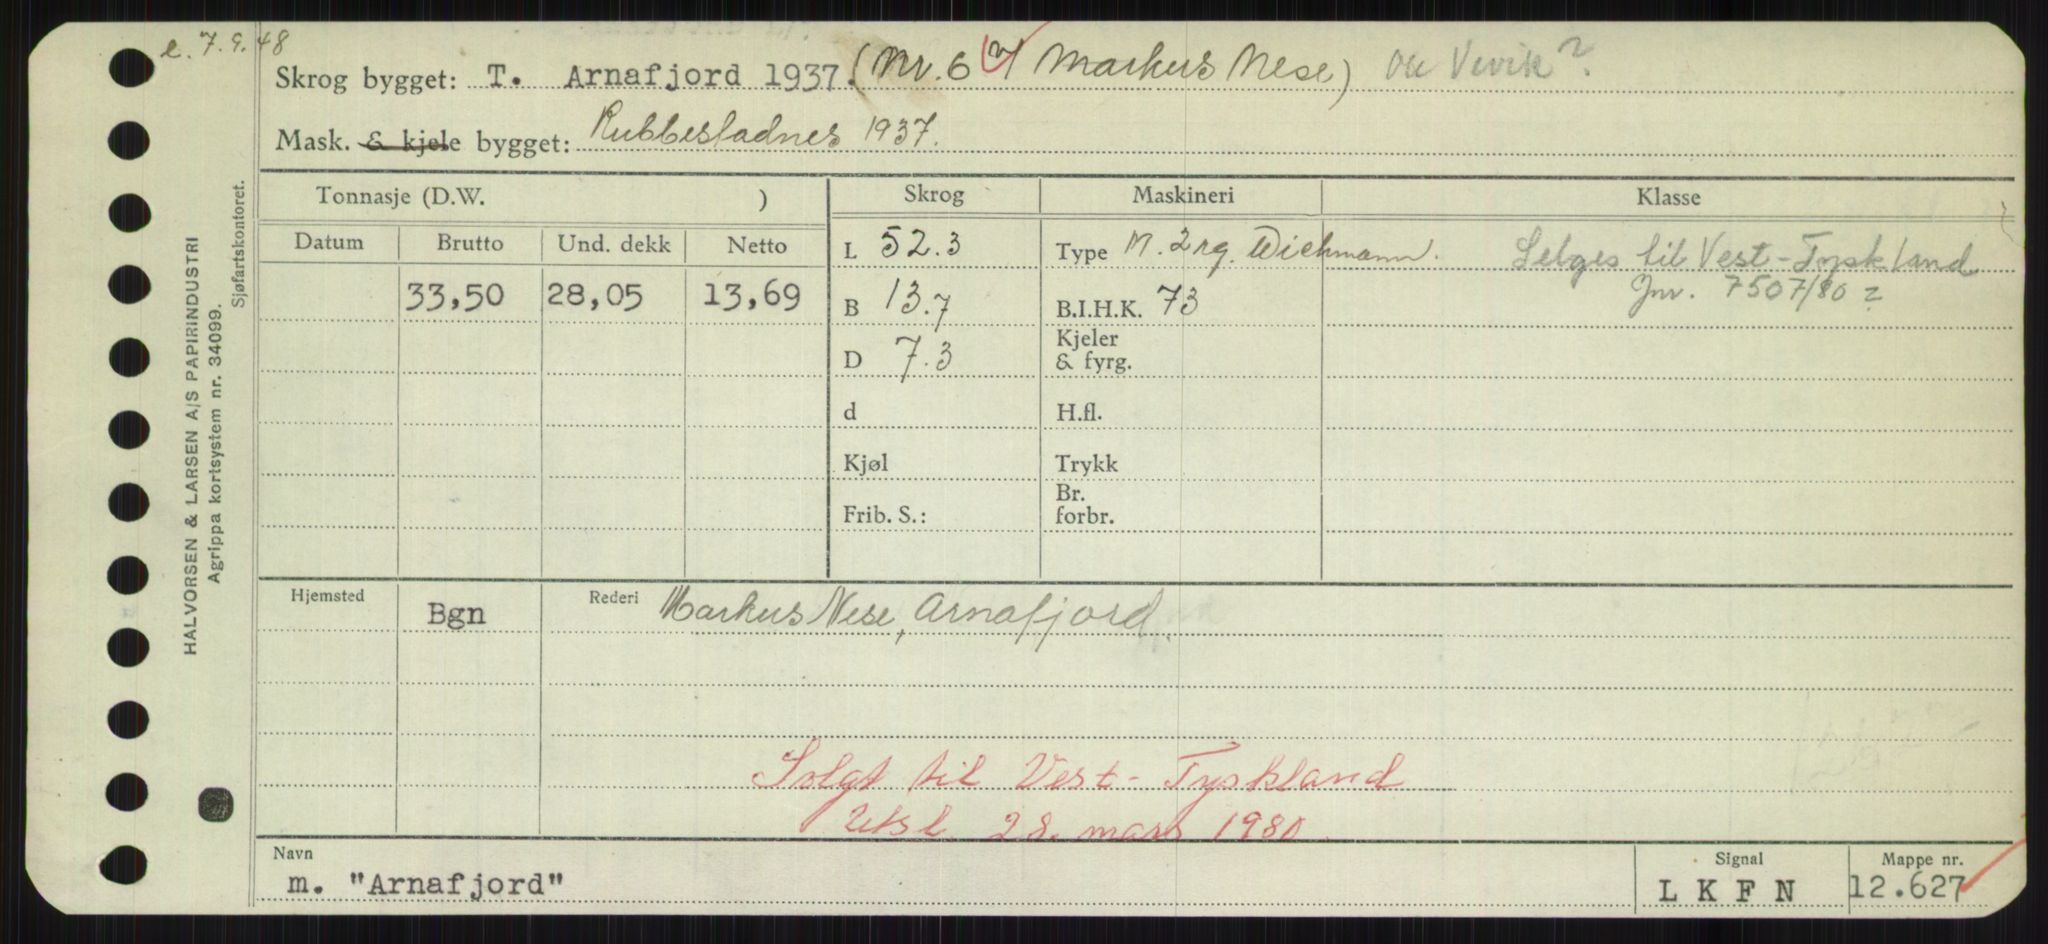 e. 7.9.48
Skrog bygget: T. Arnafjord 1937. (Nr. 6 Markus Nese)
Mask. & kjele bygget: Rubbestadnes 1937.
HALVORSEN & LARSEN A/S PAPIRINDUSTRI
Agrippa kortsystem nr. 34099.
Sjøfartskontoret.
Tonnasje (D.W. ) Skrog Maskineri Klasse
Datum Brutto Und. dekk Netto
L 52.3 Type M. 2 rg. Wichmann. Selges til Vest-Tyskland
33,50 28,05 13,69 B 13.7 B.I.H.K. 73 Jnr. 7507/80 ?
D 7.3 Kjeler & fyrg.
d H.fl.
Kjøl Trykk
Frib. S.: Br. forbr.
Hjemsted Bgn Rederi Markus Nese, Arnafjord.
Solgt til Vest-Tyskland
Utsl. 28. mars 1980.
Navn Signal Mappe nr.
m. "Arnafjord" L K F N 12.627